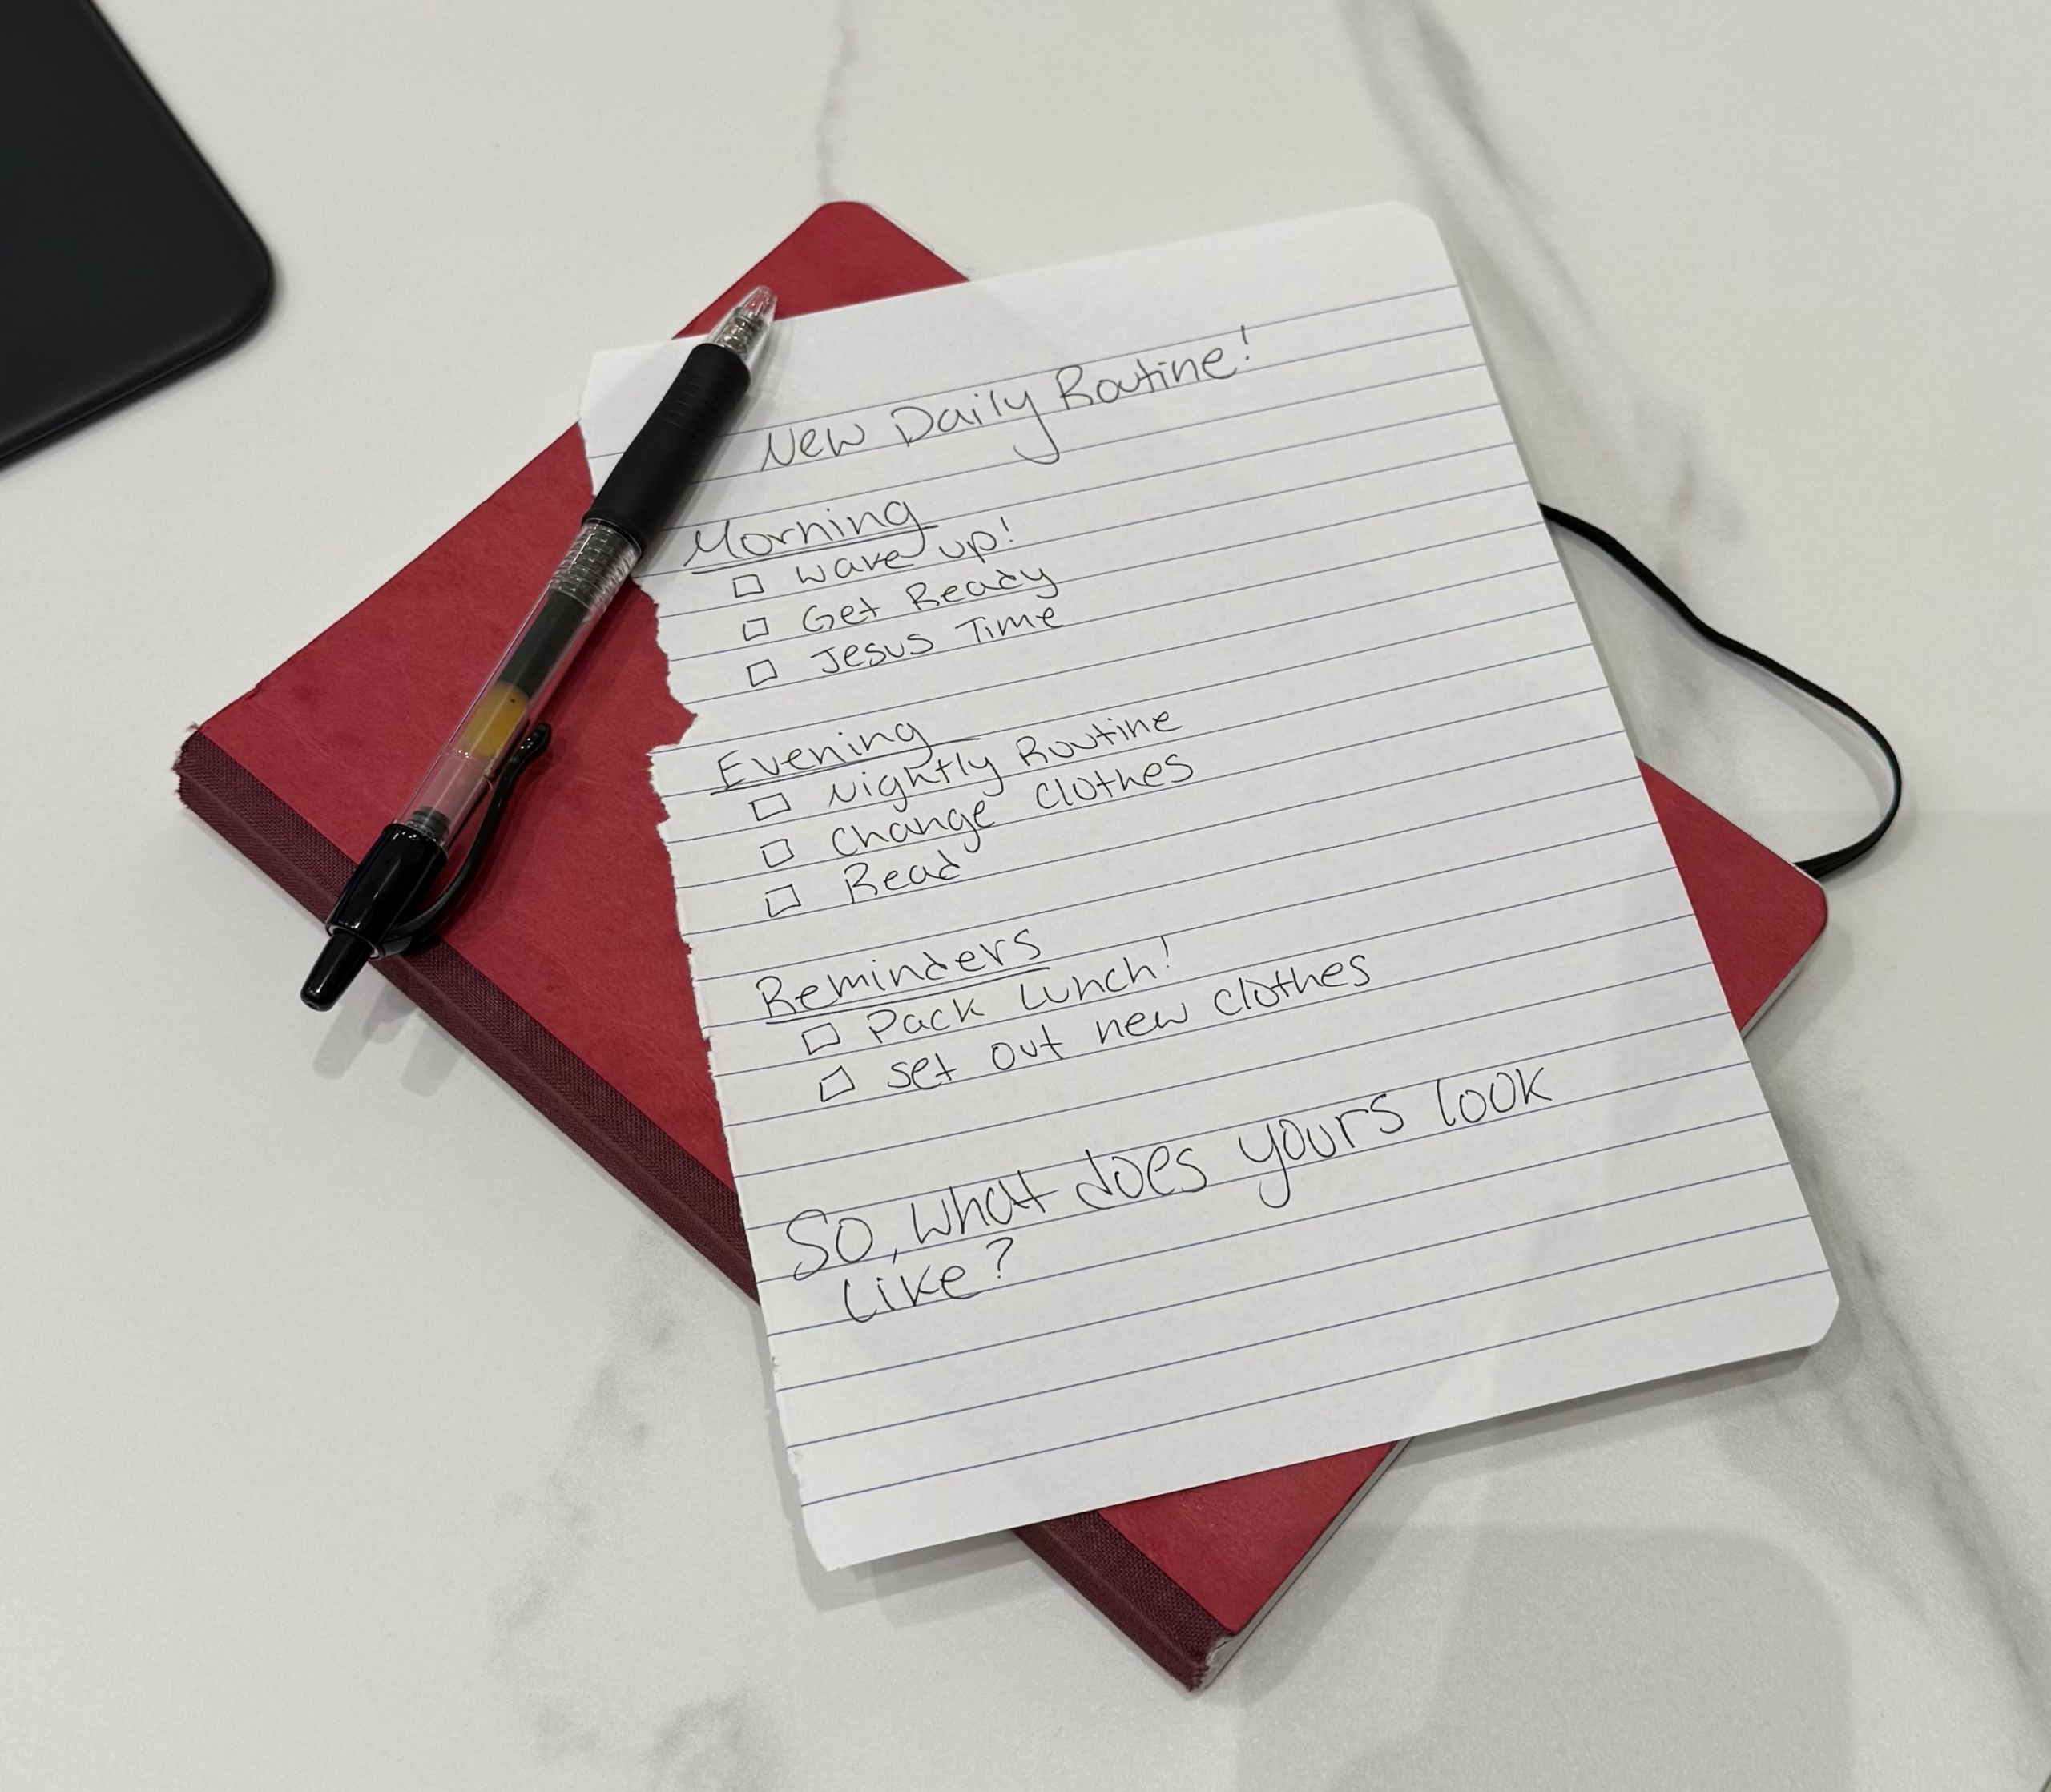 New Daily Routine!
Morning
☐ wake up!
☐ Get Ready
☐ Jesus Time
Evening
☐ Nightly Routine
☐ Change Clothes
☐ Read
Reminders
☐ Pack Lunch!
☐ set out new clothes
So, what does yours look
like?